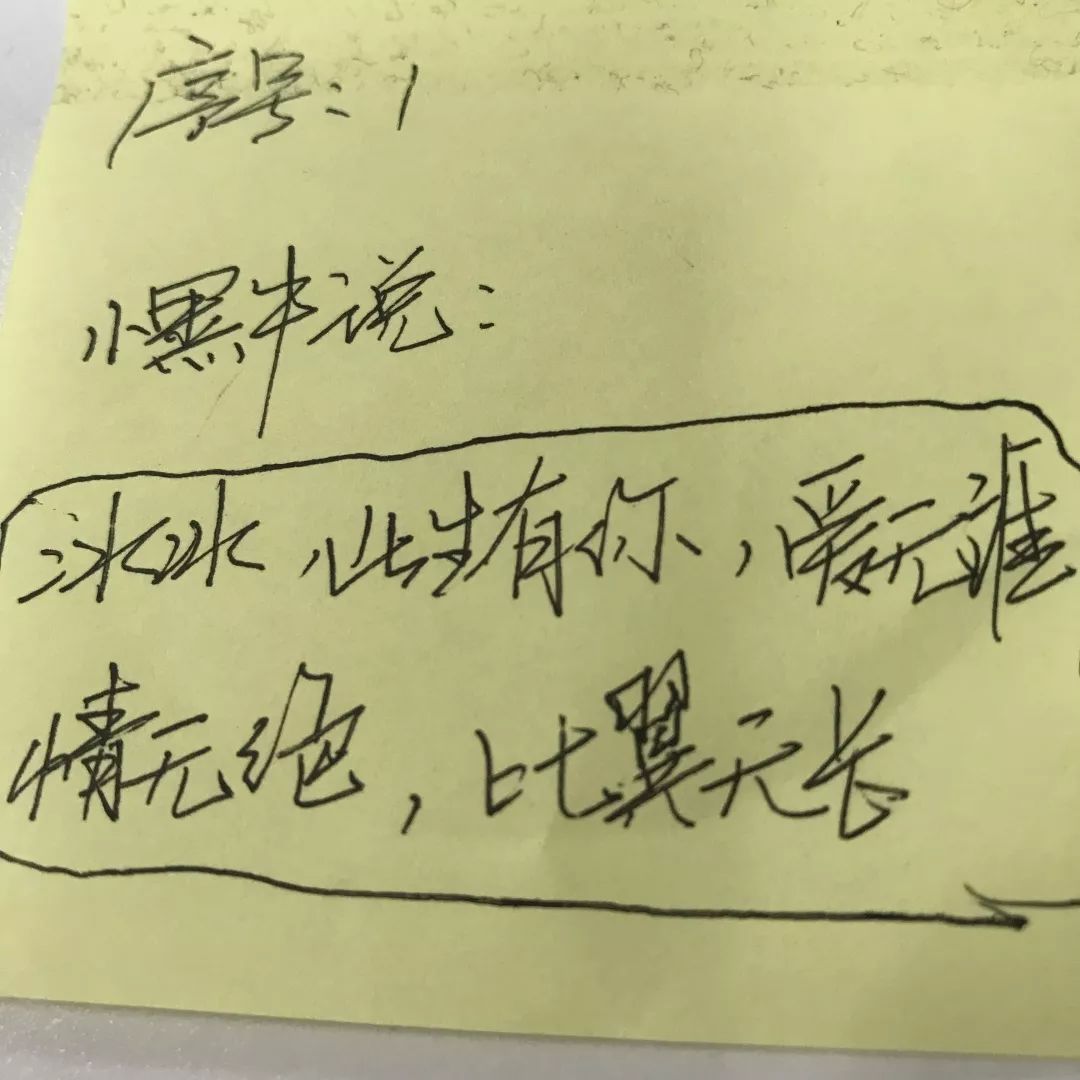 序号：1
小黑牛说：
冰冰，此生有你，爱无谁
情无绝，比翼天长